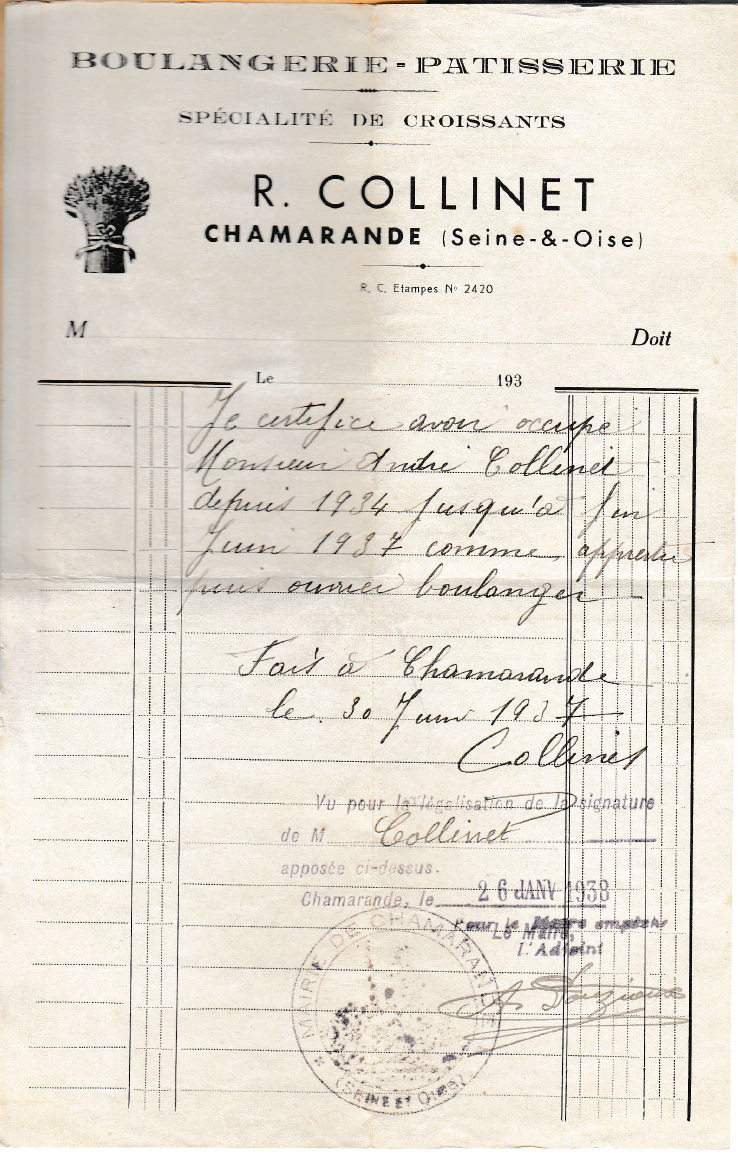 BOULANGERIE - PATISSERIE
SPÉCIALITÉ DE CROISSANTS
R. COLLINET
CHAMARANDE (Seine-&-Oise)
R. C. Etampes No 2420
M Doit
Le 193
Je certifice avoir occupé
Monsieur André Collinet
depuis 1934 Jusqu'à fin
Juin 1937 comme apprentie
puis ouvrier boulanger
Fais à Chamarande
le 30 Juin 1937
Collinet
Vu pour la légalisation de la signature
de M Collinet
apposée ci-dessus.
Chamarande, le 26 JANV 1938
Pour le Maire empêché
Le Maire,
L'Adjoint
MAIRIE DE CHAMARANDE
(SEINE ET OISE)